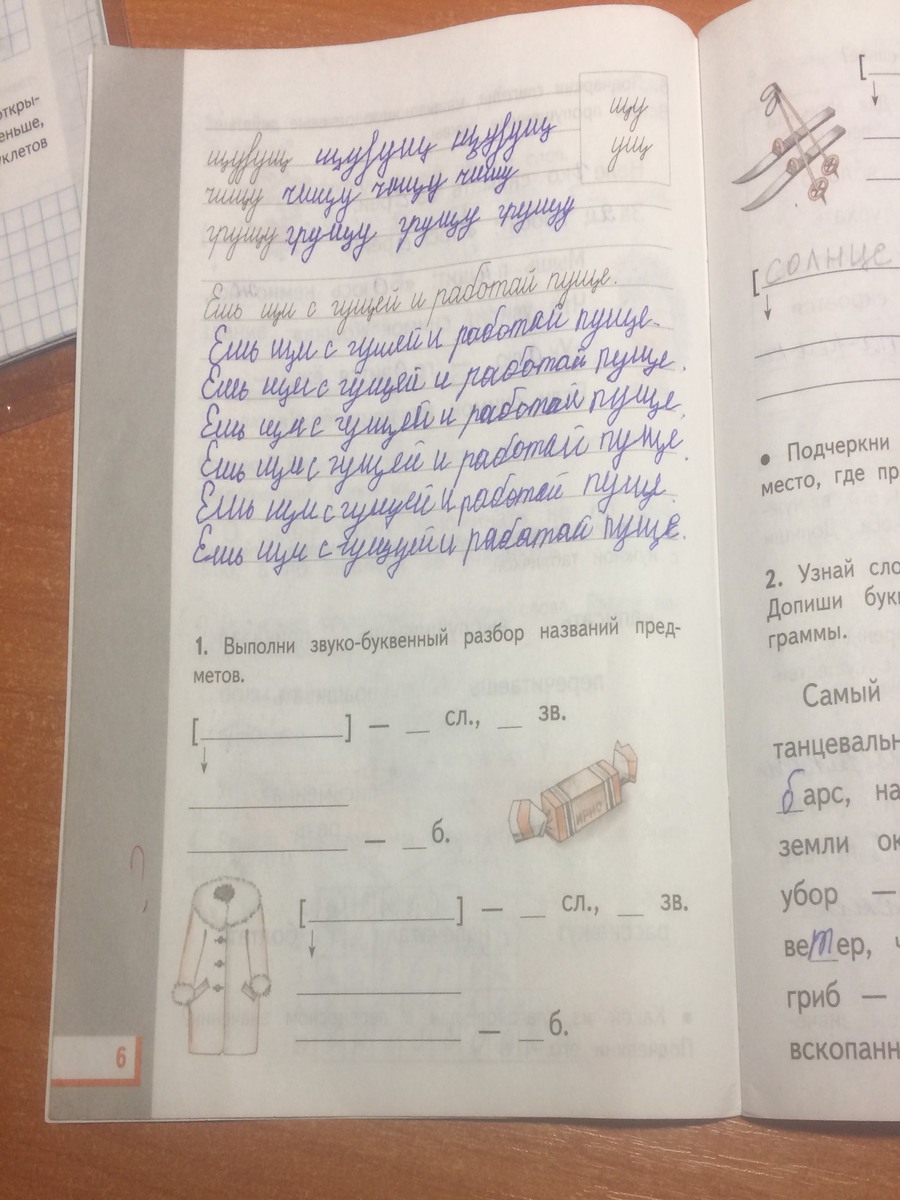 откры-
еньше,
уклетов
щу
ущ
щуğущ щуğущ щуğущ
чищу чищу чищу чищу
грущу грущу грущу грущу
Ешь щи с гущей и работай пуще.
Ешь щи с гущей и работай пуще.
Ешь щи с гущей и работай пуще.
Ешь щи с гущей и работай пуще.
Ешь щи с гущей и работай пуще.
Ешь щи с гущей и работай пуще
Ешь щи с гущуей и работай пуще.
1. Выполни звуко-буквенный разбор названий пред-
метов.
[ ] — __ сл., __ зв.
— __ б.
ИРИС
[ ] — __ сл., __ зв.
— __ б.
6
[
[солнце
• Подчеркни
место, где пр
2. Узнай сло
Допиши букв
граммы.
Самый
танцевальн
барс, на
земли ок
убор —
ветер, ч
гриб —
вскопанн